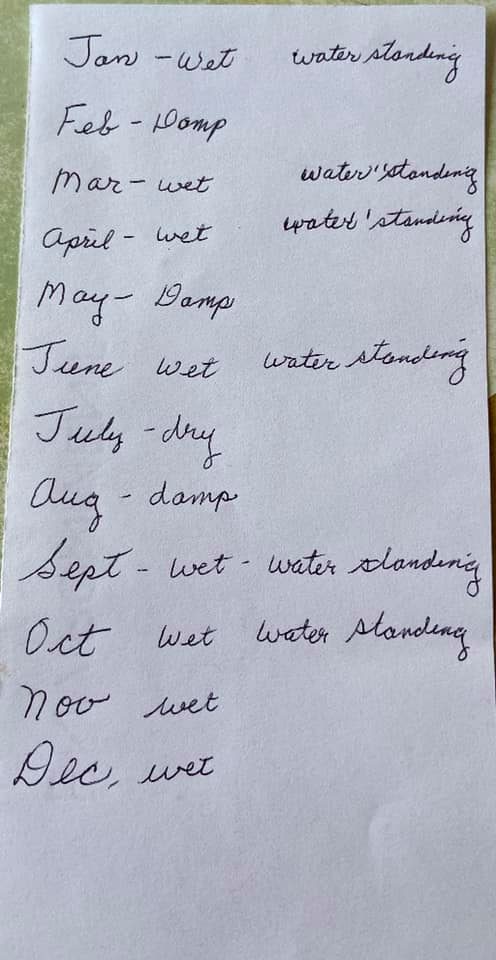 Jan - wet water standing
Feb - Damp
Mar - wet water'standing
April - wet water'standing
May - Damp
June wet water standing
July - dry
Aug - damp
Sept - wet - water standing
Oct wet water standing
Nov wet
Dec, wet